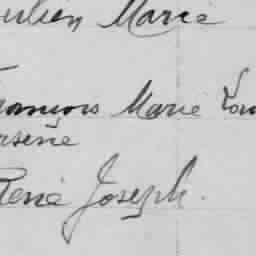 Julien Marie
François Marie Lou
Arsène
René Joseph.